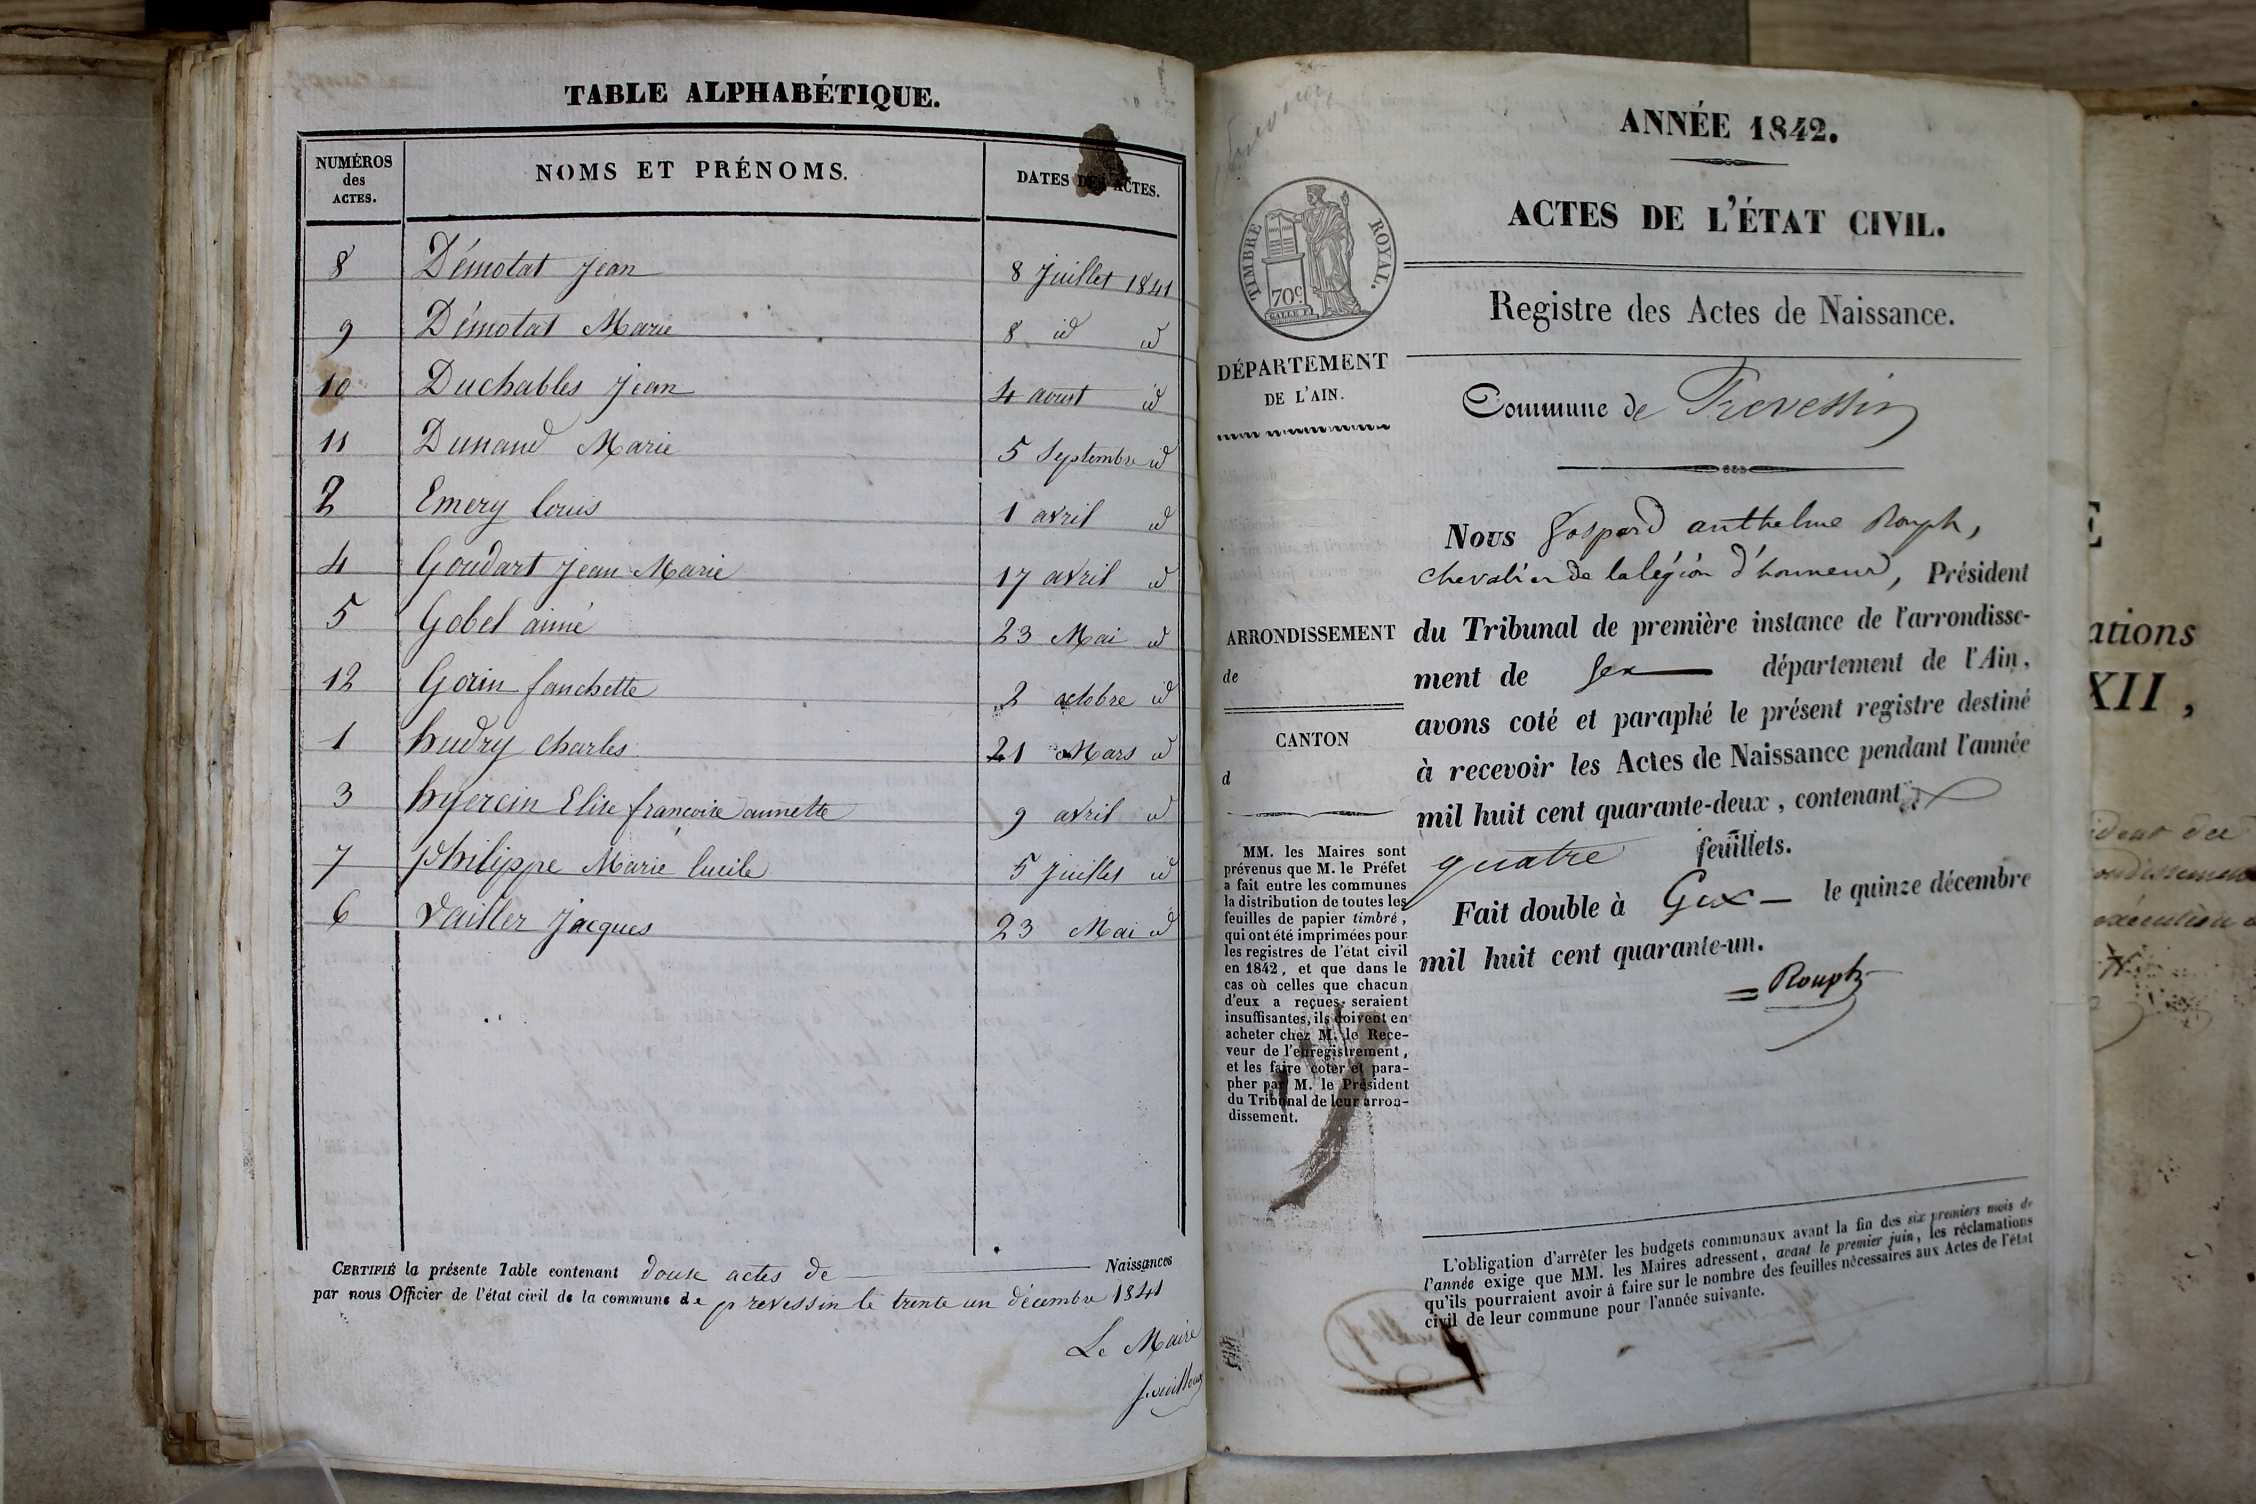 TABLE ALPHABÉTIQUE.
NUMÉROS des ACTES.
NOMS ET PRÉNOMS.
DATES DES ACTES.
8 Démotat jean 8 juillet 1841
9 Démotat Marie 8 id id
10 Duchables jean 4 aoust id
11 Dunand Marie 5 Septembre id
2 Emery louis 1 avril id
4 Goudart jean Marie 17 avril id
5 Gobel aimé 23 Mai id
12 Gorin fanchette 2 octobre id
1 hudry charles 21 Mars id
3 hyercin Elise françoise annette 9 avril id
7 philippe Marie lucile 5 juillet id
6 Vailler jacques 23 Mai id
CERTIFIÉ la présente Table contenant douze actes de Naissances
par nous Officier de l'état civil de la commune de prevessin le trente un décembre 1841
Le Maire
ANNÉE 1842.
ACTES DE L'ÉTAT CIVIL.
TIMBRE ROYAL.
70c
Registre des Actes de Naissance.
DÉPARTEMENT
DE L'AIN.
Commune de Prevessin
Nous Gaspard anthelme Rouph,
chevalier de la légion d'honneur, Président
ARRONDISSEMENT
de
CANTON
d
du Tribunal de première instance de l'arrondisse-
ment de Gex département de l'Ain,
avons coté et paraphé le présent registre destiné
à recevoir les Actes de Naissance pendant l'année
mil huit cent quarante-deux, contenant
quatre feuillets.
Fait double à Gex le quinze décembre
mil huit cent quarante-un.
Rouph
MM. les Maires sont
prévenus que M. le Préfet
a fait entre les communes
la distribution de toutes les
feuilles de papier timbré,
qui ont été imprimées pour
les registres de l'état civil
en 1842, et que dans le
cas où celles que chacun
d'eux a reçues seraient
insuffisantes, ils doivent en
acheter chez M. le Rece-
veur de l'enregistrement,
et les faire coter et para-
pher par M. le Président
du Tribunal de leur arron-
dissement.
L'obligation d'arrêter les budgets communaux avant la fin des six premiers mois de
l'année exige que MM. les Maires adressent, avant le premier juin, les réclamations
qu'ils pourraient avoir à faire sur le nombre des feuilles nécessaires aux Actes de l'état
civil de leur commune pour l'année suivante.
E
ations
XII,